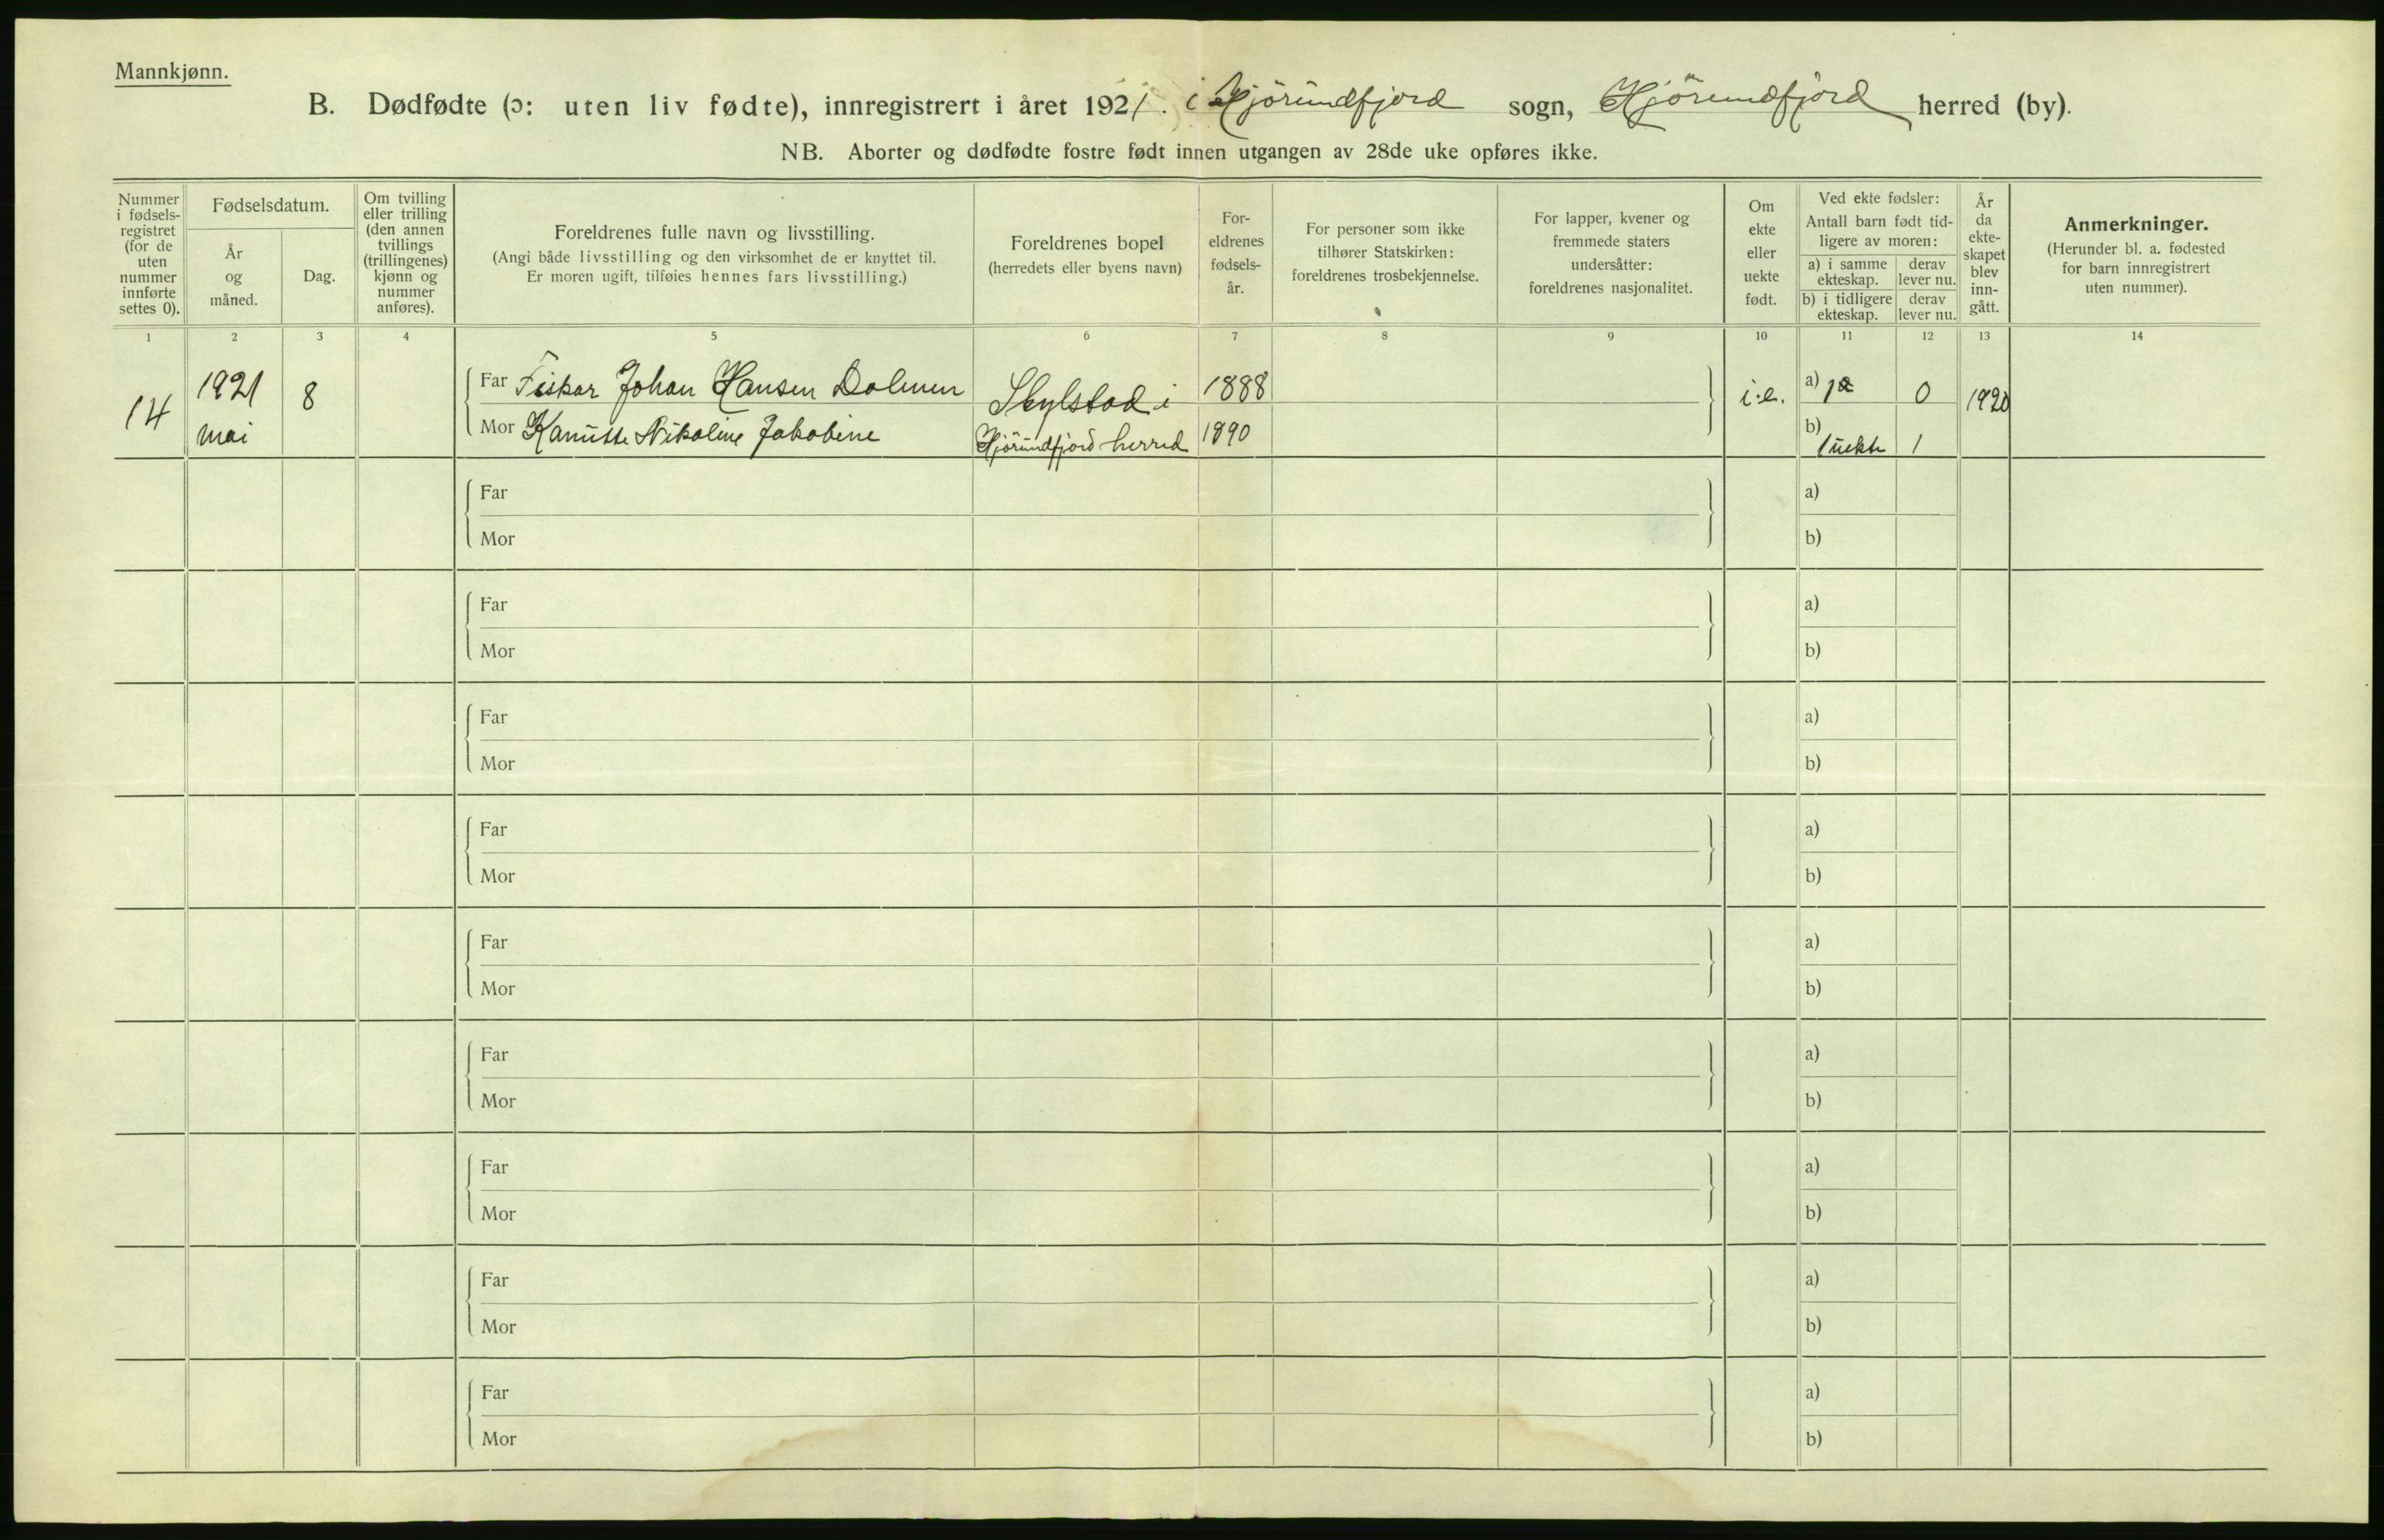 Mannkjønn.
B. Dødfødte (ɔ: uten liv fødte), innregistrert i året 1921. i Hjörundfjord sogn, Hjörundfjord herred (by).
NB. Aborter og dødfødte fostre født innen utgangen av 28de uke opføres ikke.
Nummer
i fødsels-
registret
(for de
uten
nummer
innførte
settes 0).
Fødselsdatum.
År
og
måned.
Dag.
Om tvilling
eller trilling
(den annen
tvillings
(trillingenes)
kjønn og
nummer
anføres).
Foreldrenes fulle navn og livsstilling.
(Angi både livsstilling og den virksomhet de er knyttet til.
Er moren ugift, tilføies hennes fars livsstilling.)
Foreldrenes bopel
(herredets eller byens navn)
For-
eldrenes
fødsels-
år.
For personer som ikke
tilhører Statskirken:
foreldrenes trosbekjennelse.
For lapper, kvener og
fremmede staters
undersåtter:
foreldrenes nasjonalitet.
Om
ekte
eller
uekte
født.
Ved ekte fødsler:
Antall barn født tid-
ligere av moren:
a) i samme
ekteskap.
derav
lever nu.
b) i tidligere
ekteskap.
derav
lever nu.
År
da
ekte-
skapet
blev
inn-
gått.
Anmerkninger.
(Herunder bl. a. fødested
for barn innregistrert
uten nummer).
1 2 3 4 5 6 7 8 9 10 11 12 13 14
14
1921
mai
8
Far Fisker Johan Hansen Dolmen
Mor Kanutte Nikoline Jakobine
Skylstad i
Hjörundfjord herred
1888
1890
i.e.
a)
0
b) 1 uekte 1
1920
Far
Mor
a)
b)
Far
Mor
a)
b)
Far
Mor
a)
b)
Far
Mor
a)
b)
Far
Mor
a)
b)
Far
Mor
a)
b)
Far
Mor
a)
b)
Far
Mor
a)
b)
Far
Mor
a)
b)